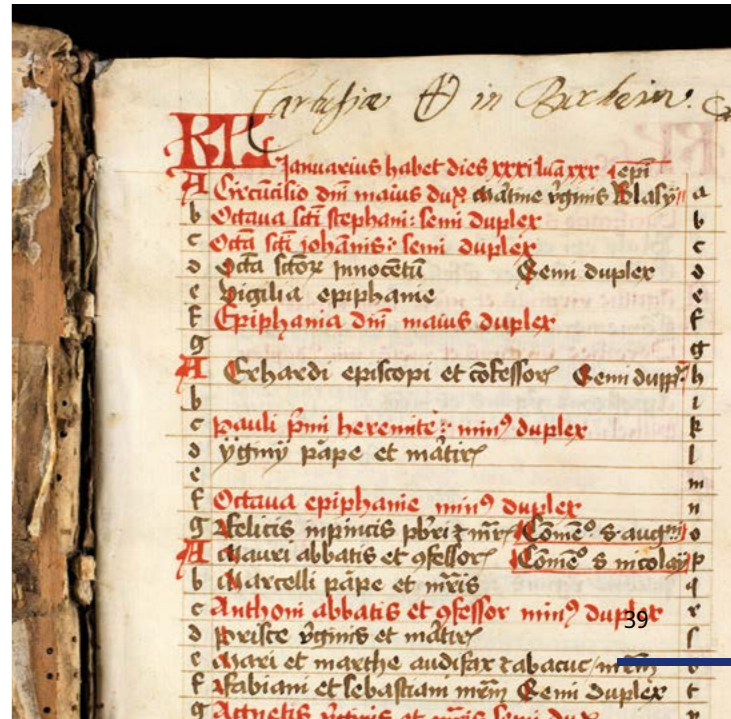 Cartusiæ in Buxheim.
KL
Januarius habet dies xxxi luā xxx epi
A Circūcisio dn̄i maius dup̄x Blasy a
b Octaua sc̄ti stephani: semi duplex b
c Oct̄a sc̄ti johānis: semi duplex c
d Oct̄a sc̄tor̄ Innocētū Semi duplex d
e Vigilia epiphanie e
f Epiphania dn̄i maius duplex f
g g
A Erhardi episcopi et cōfessor̄ Semi dupp̄ h
b i
c Pauli p̄mi heremite: min⁹ duplex k
d yginy pāpe et mātir̄ l
e m
f Octaua epiphanie min⁹ duplex n
g felicis Comē° s augᵗⁱ o
A Mauri abbatis et ɔfessor̄ Comē° s nicolay p
b Marcelli pāpe et mr̄is q
c Anthoni abbatis et ɔfessor min⁹ duplex r
39
d Prisce v̄ginis et mātir̄ s
e Mari et marthe audifax ⁊ abacuc mr̄m
f fabiani et sebastiani mr̄m Semi duplex t
g Agnetis v̄ginis et mr̄is semi dup̄x